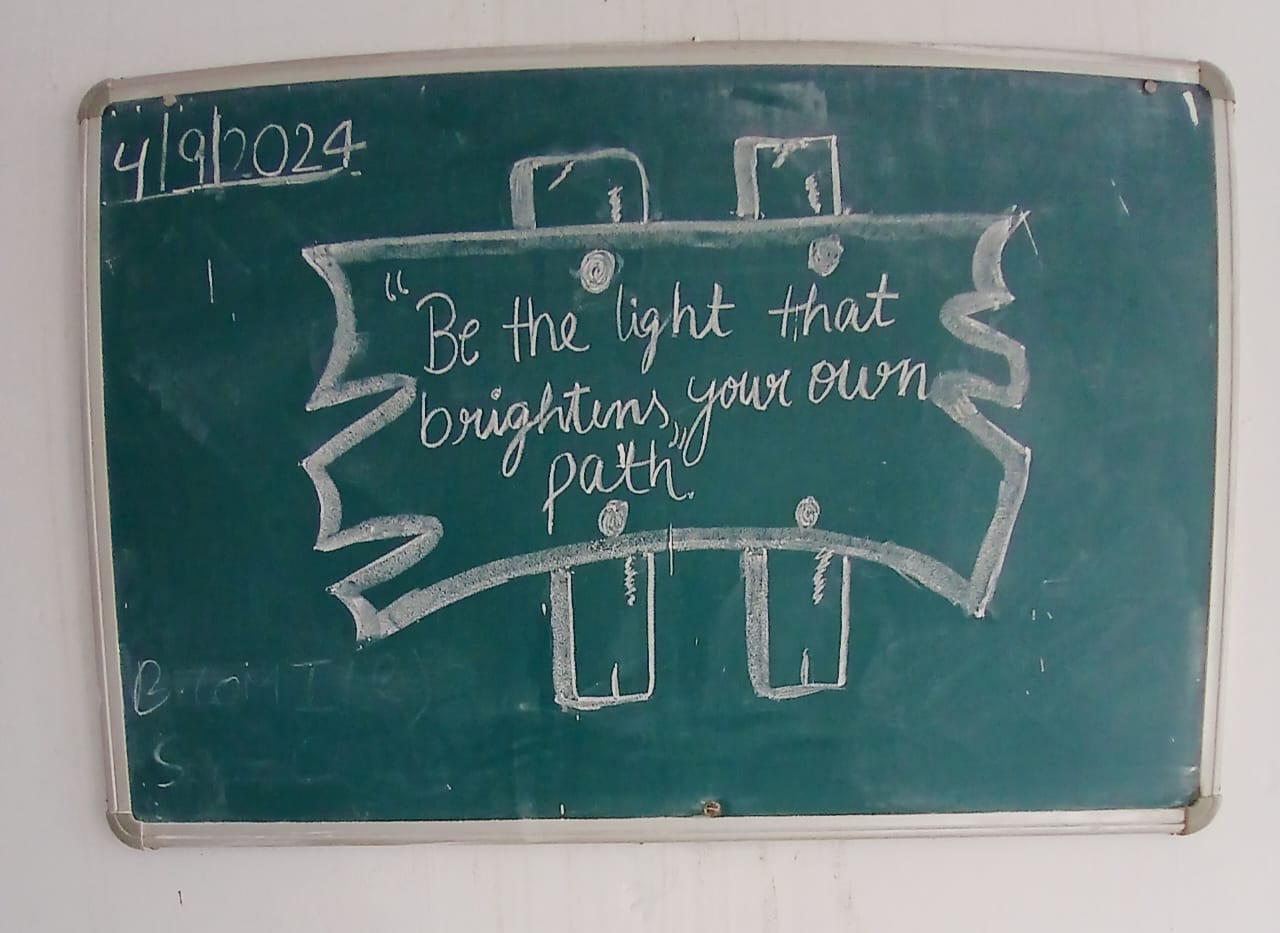 4/9/2024
"Be the light that
brightens your own
path".